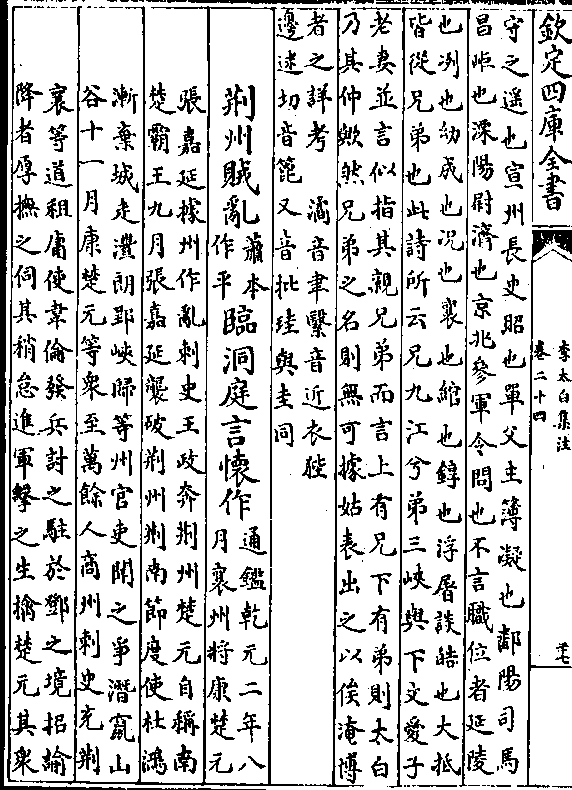 欽定四庫全書
李太白集注
卷二十四
守之遥也宣州長史昭也單父主簿凝也鄱陽司馬
昌岠也溧陽尉濟也京兆參軍令問也不言職位者延陵
也洌也幼成也况也襄也綰也錞也浮屠談皓也大抵
皆從兄弟也此詩所云兄九江兮弟三峽與下文愛子
老妻並言似指其親兄弟而言上有兄下有弟則太白
乃其仲歟然兄弟之名則無可據姑表出之以俟淹博
者之詳考 潏音聿繄音近衣狴
邊迷切音篦又音批珪與圭同
荆州賊亂蕭本作平臨洞庭言懷作通鑑乾元二年八
月襄州將康楚元
張嘉延據州作亂刺史王政奔荆州楚元自稱南
楚霸王九月張嘉延襲破荆州荆南節度使杜鴻
漸棄城走澧朗郢峽歸等州官吏聞之爭潛竄山
谷十一月康楚元等衆至萬餘人商州刺史充荆
襄等道租庸使韋倫發兵討之駐於鄧之境招諭
降者厚撫之伺其稍怠進軍擊之生擒楚元其衆